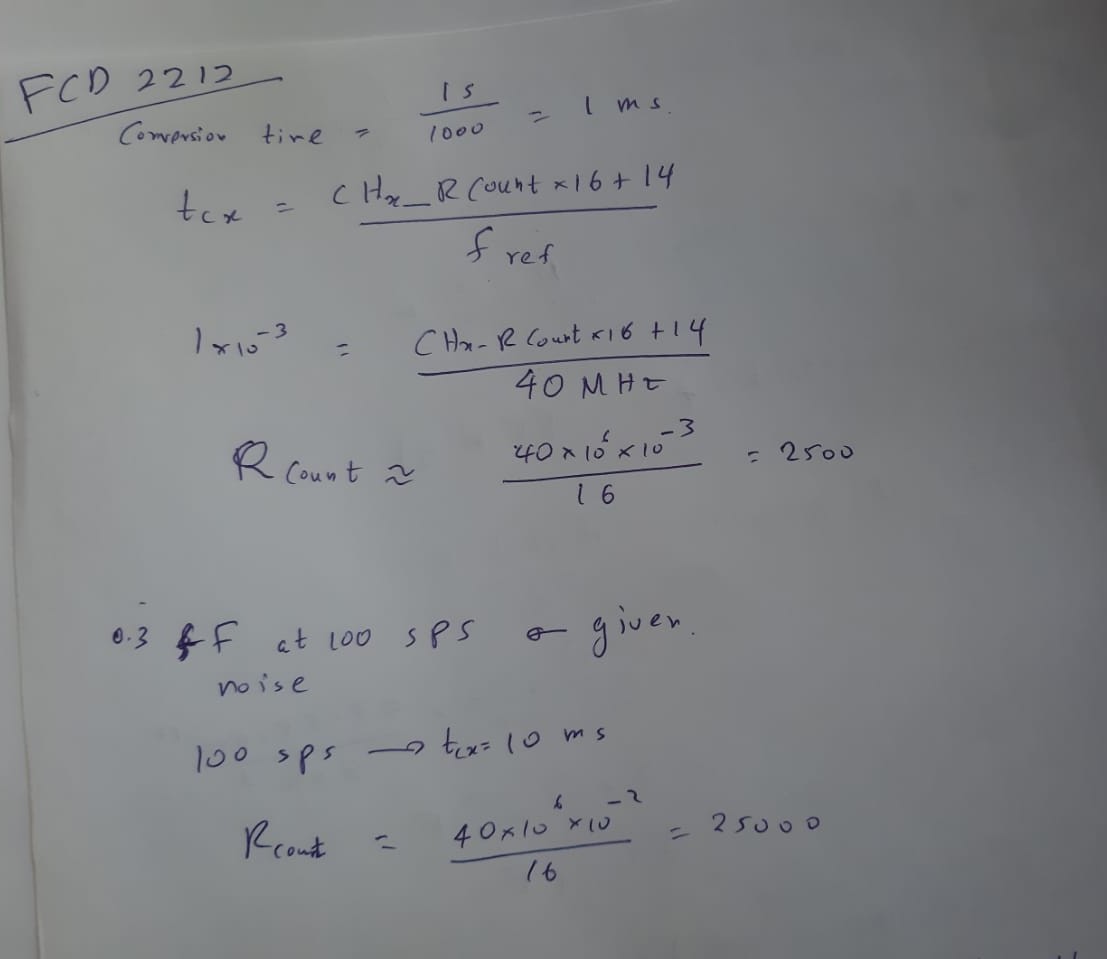 FCD 2212
Conversion time = 1 s / 1000 = 1 ms.
tcx = CHx_RCount × 16 + 14 / f ref
1×10⁻³ = CHx-RCount × 16 + 14 / 40 MHz
RCount ≈ 40 × 10⁶ × 10⁻³ / 16 = 2500
0.3 fF at 100 sps → given.
noise
100 sps → tcx = 10 ms
Rcount = 40×10⁶ × 10⁻² / 16 = 25000